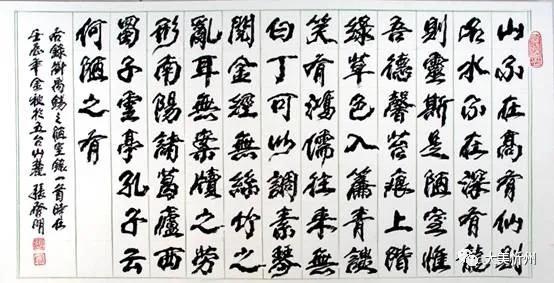 山不在高有仙則
名水不在深有龍
則靈斯是陋室惟
吾德馨苔痕上階
綠草色入簾青談
笑有鴻儒往來無
白丁可以調素琴
閱金經無絲竹之
亂耳無案牘之勞
形南陽諸葛廬西
蜀子雲亭孔子云
何陋之有
右錄劉禹錫之陋室銘一首時在
壬辰年金秋於五台山麓張啓明
大美忻州